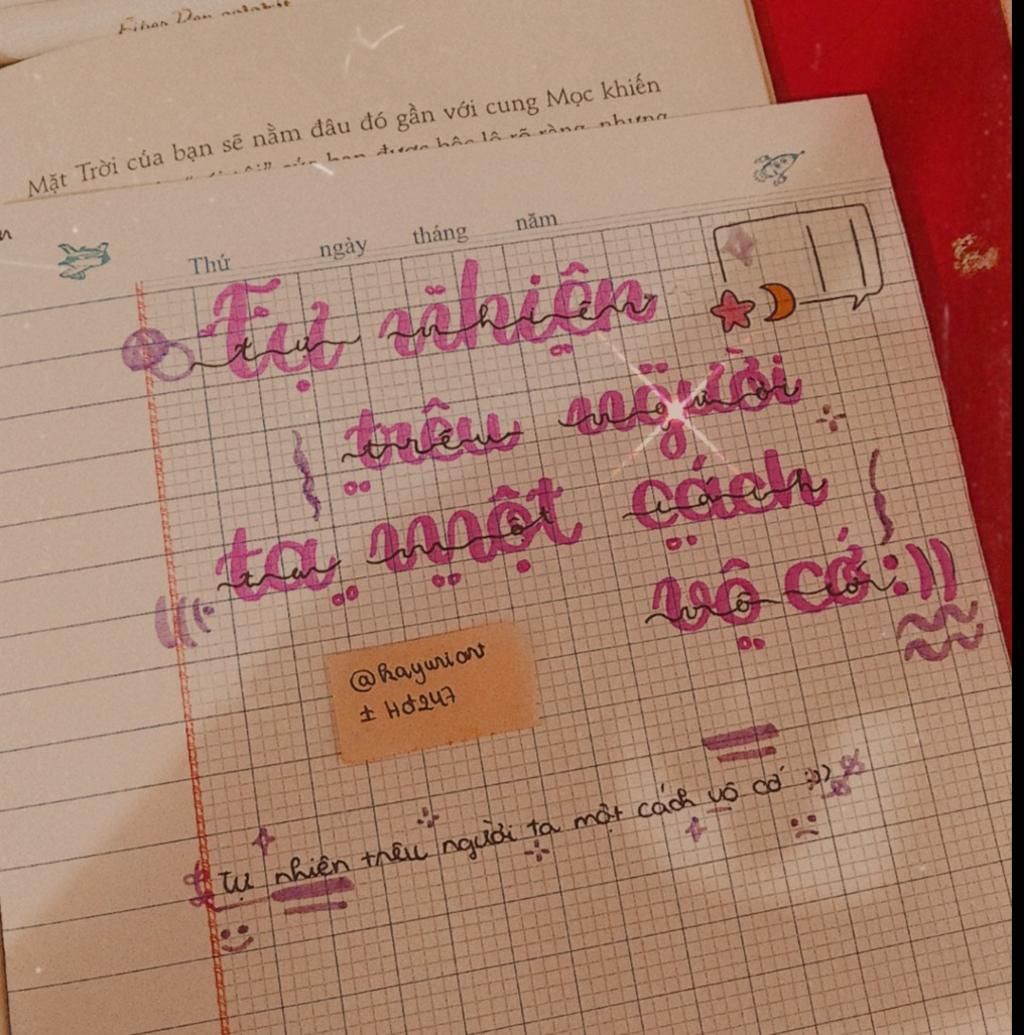 Mặt Trời của bạn sẽ nằm đâu đó gần với cung Mọc khiến
Thứ ngày tháng năm
Tự nhiên
trêu người
ta một cách
vô cớ :))
@kayuriont
± Hđ247
Tự nhiên trêu người ta một cách vô cớ :))